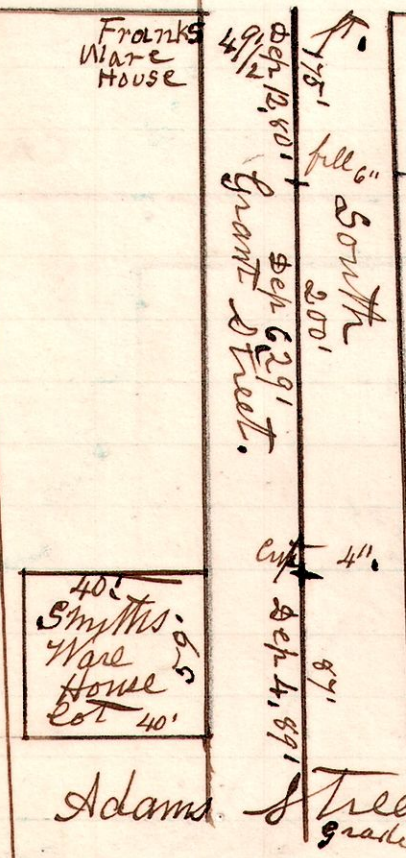 Franks
Ware
House
49 1/2'
Dep 12,80'
175'
fill 6"
Grant Street.
South
Dep 6,29'
200'
Cut 4".
40'
Smyths
Ware
House
Lot 40'
Dep 4,89'
87'
Adams Stree
grade